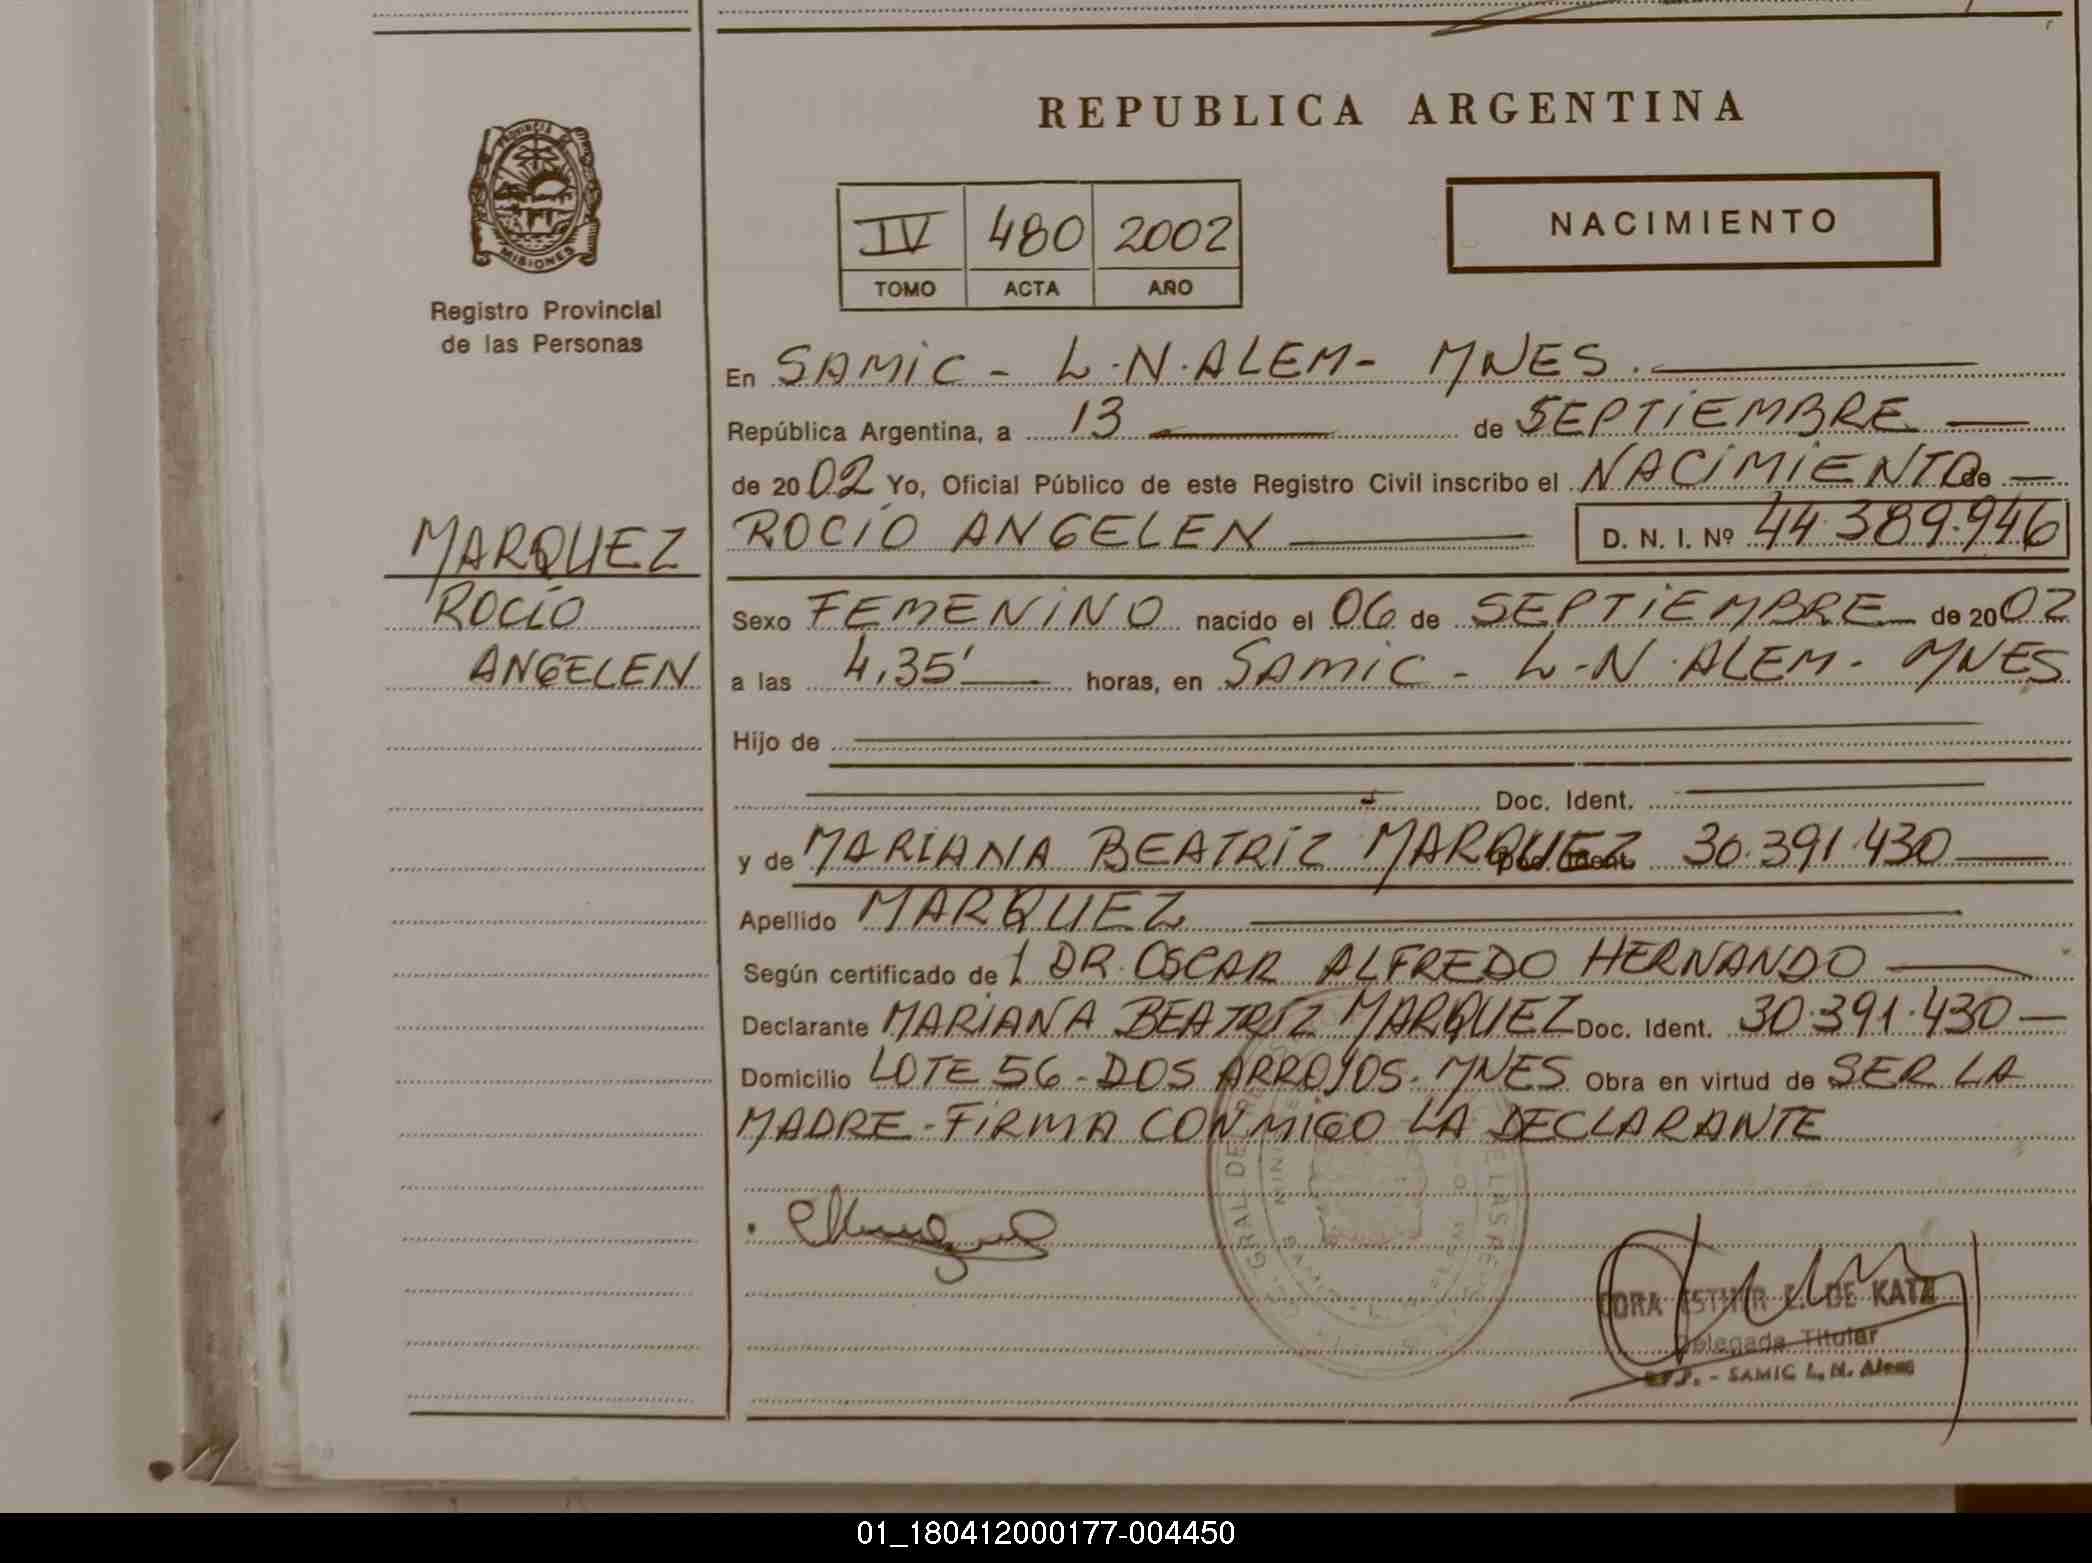 REPUBLICA ARGENTINA
PROVINCIA DE
MISIONES
Registro Provincial
de las Personas
IV 480 2002
TOMO ACTA AÑO
NACIMIENTO
En SAMIC - L.N.ALEM- MNES.
República Argentina, a 13 de SEPTIEMBRE
de 2002 Yo, Oficial Público de este Registro Civil inscribo el NACIMIENTO de
MARQUEZ
ROCÍO
ANGELEN
ROCÍO ANGELEN D. N. I. Nº 44.389.946
Sexo FEMENINO nacido el 06 de SEPTIEMBRE de 2002
a las 4,35' horas, en SAMIC - L-N.ALEM- MNES
Hijo de
Doc. Ident.
y de MARIANA BEATRIZ MARQUEZ Doc. Ident. 30.391.430
Apellido MARQUEZ
Según certificado de 1 DR. OSCAR ALFREDO HERNANDO
Declarante MARIANA BEATRIZ MARQUEZ Doc. Ident. 30.391.430
Domicilio LOTE 56 - DOS ARROYOS - MNES Obra en virtud de SER LA
MADRE - FIRMA CONMIGO LA DECLARANTE
GRAL DE
CORA ESTHER E. DE KATZ
Delegada Titular
R.P.P. - SAMIC L. N. Alem
01_180412000177-004450